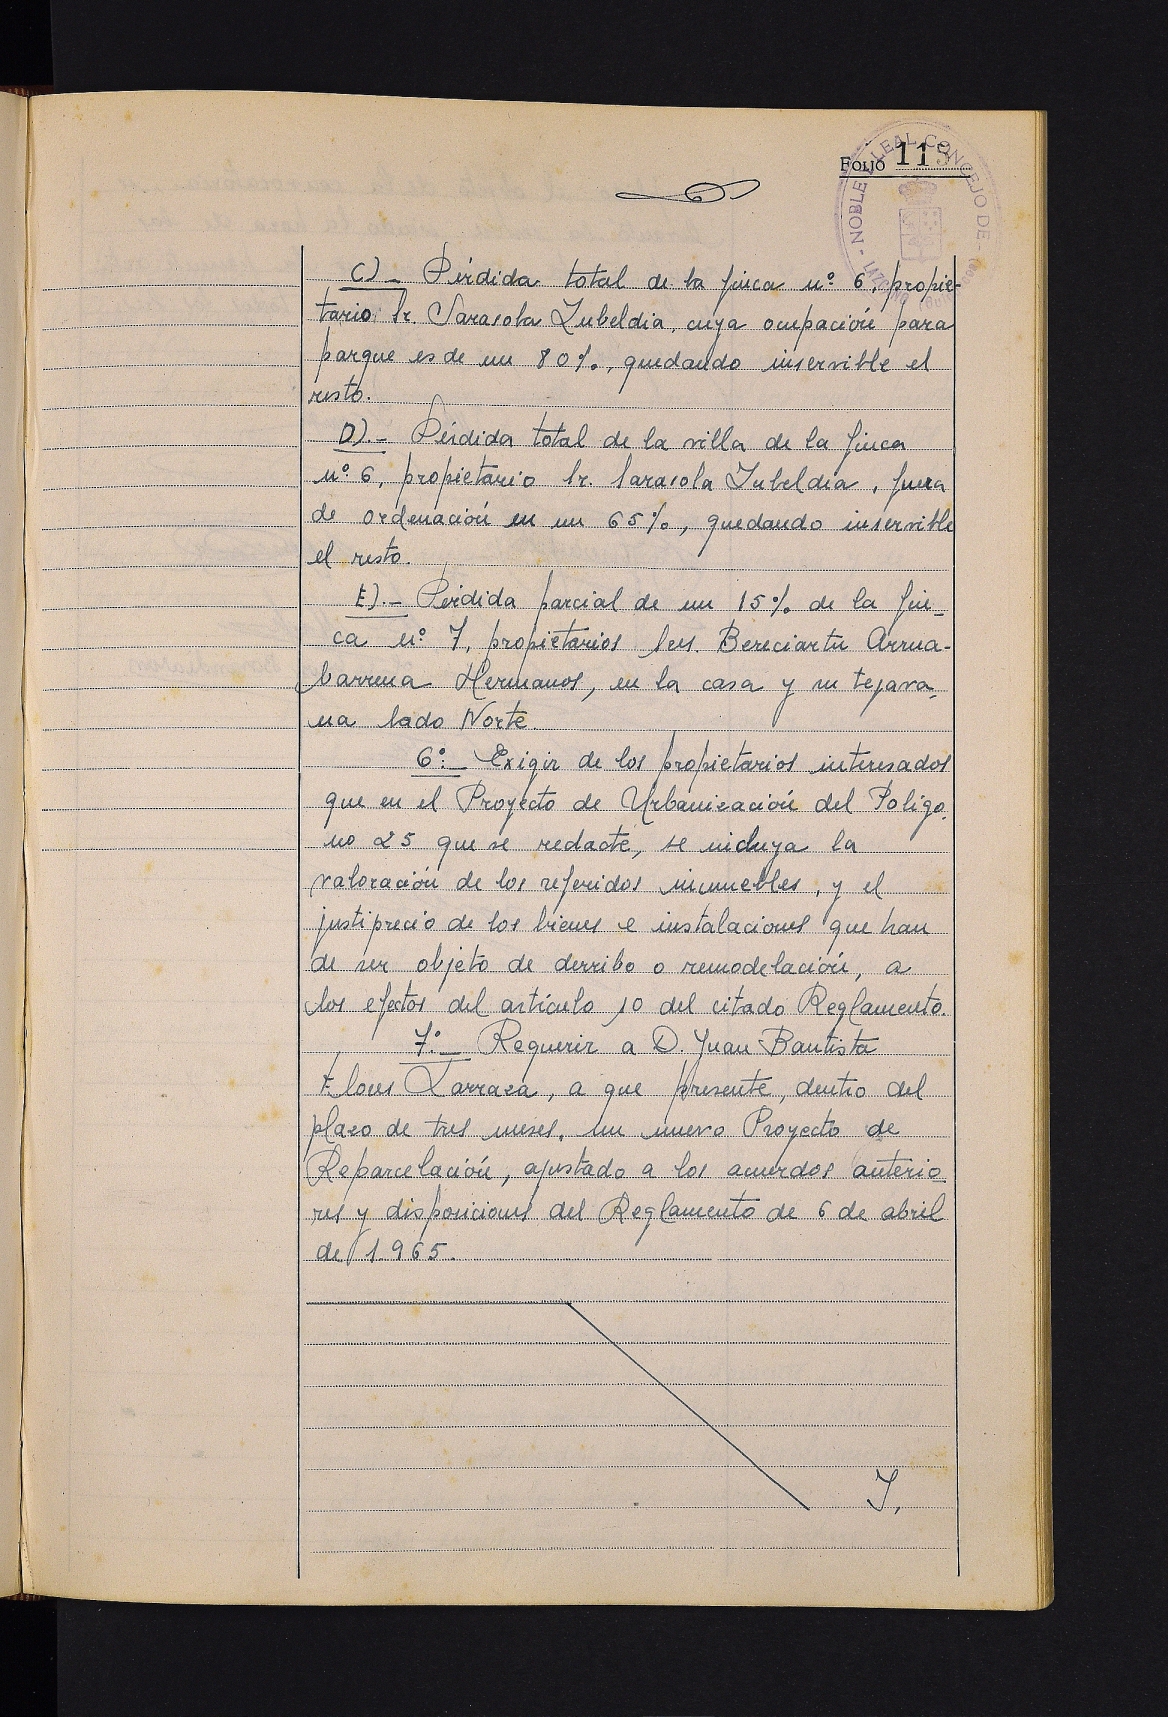 FOLIO 115
NOBLE Y LEAL CONCEJO DE
C).- Pérdida total de la finca nº 6, propie-
tario Sr. Sarasola Zubeldia, cuya ocupación para
parque es de un 80%, quedando inservible el
resto.
D).- Pérdida total de la villa de la finca
nº 6, propietario Sr. Sarasola Zubeldia, fuera
de ordenación en un 65%, quedando inservible
el resto.
E).- Pérdida parcial de un 15% de la fin-
ca nº 7, propietarios Srs. Bereciartu Arrua-
barrena Hermanos, en la casa y su tejava-
na lado Norte.
6º.- Exigir de los propietarios interesados
que en el Proyecto de Urbanización del Polígo-
no 25 que se redacte, se incluya la
valoración de los referidos inmuebles, y el
justiprecio de los bienes e instalaciones que han
de ser objeto de derribo o remodelación, a
los efectos del artículo 10 del citado Reglamento.
7º.- Requerir a D. Juan Bautista
Flores Larraza, a que presente, dentro del
plazo de tres meses, un nuevo Proyecto de
Reparcelación, ajustado a los acuerdos anterio-
res y disposiciones del Reglamento de 6 de abril
de 1.965.